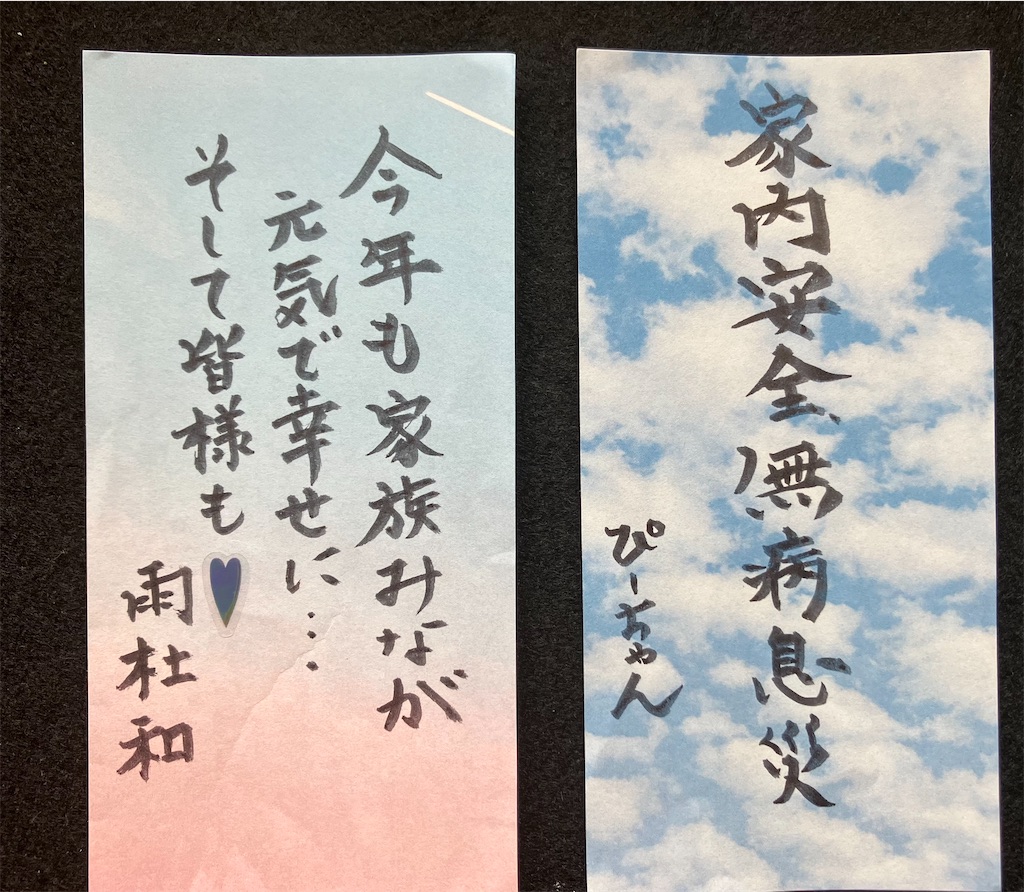 家内安全無病息災
ぴーちゃん
今年も家族みなが
元気で幸せに…
そして皆様も
雨杜和